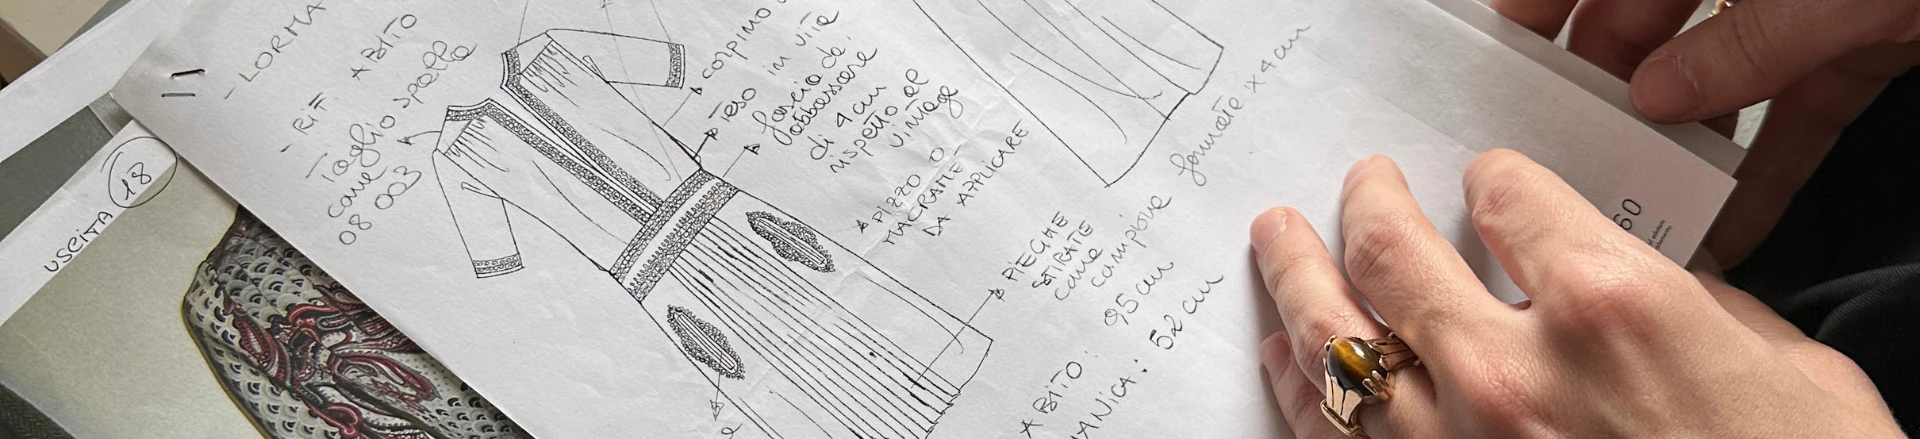 - LORMA
- RIF. ABITO
Taglio spalla
come
08 003
corpino
TESO in vita
fascia da
abbassare
di 4 cm
rispetto al
vintage
PIZZO O
MACRAME'
DA APPLICARE
PIEGHE
STIRATE
come
campione
fermate x 4 cm
ABITO: 95 cm
MANICA: 52 cm
USCITA 18
60